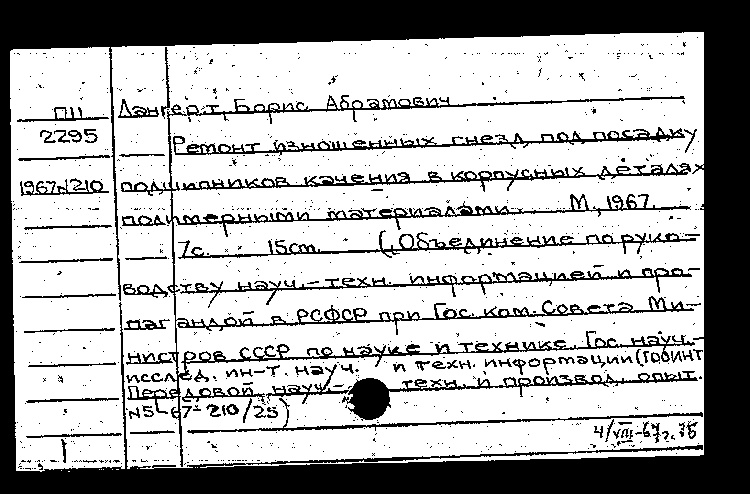 П11 Лангерт, Борис Абрамович
2295 Ремонт изношенных гнезд под посадку
1967н210 подшипников качения в корпусных деталях
полимерными материалами. М., 1967.
7с. 15см. (Объединение по руко-
водству науч.-техн. информацией и про-
пагандой в РСФСР при Гос. ком. Совета Ми-
нистров СССР по науке и технике. Гос. науч.-
исслед. ин-т. науч. и техн. информации (ГОСИНТИ
Передовой науч.- техн. и производ. опыт.
N5-67-210/25)
4/VIII-67